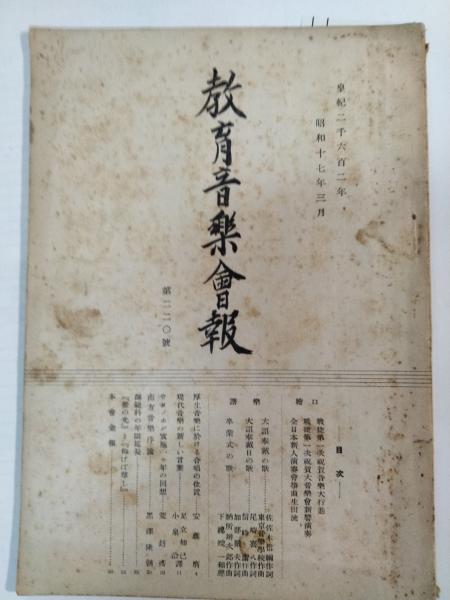 皇紀二千六百二年
昭和十七年三月
教育音樂會報
第二二〇號
目次
口繪
戰捷第一次祝賀音樂大行進
戰捷第一次祝賀大音樂會新響演奏
全日本新人演奏會箏曲生田流
樂譜
大詔奉戴の歌
佐佐木信綱作詞
東京音樂學校作曲
大詔奉戴日の歌
尾崎喜八作詞
信時潔作曲
卒業式の歌
厚生音樂に於ける合唱の位置
現代音樂の新しい言葉
足立知己譯
小泉洽
南方音樂序論
黑澤隆朝
『螢の光』と『仰げば尊し』
本會彙報